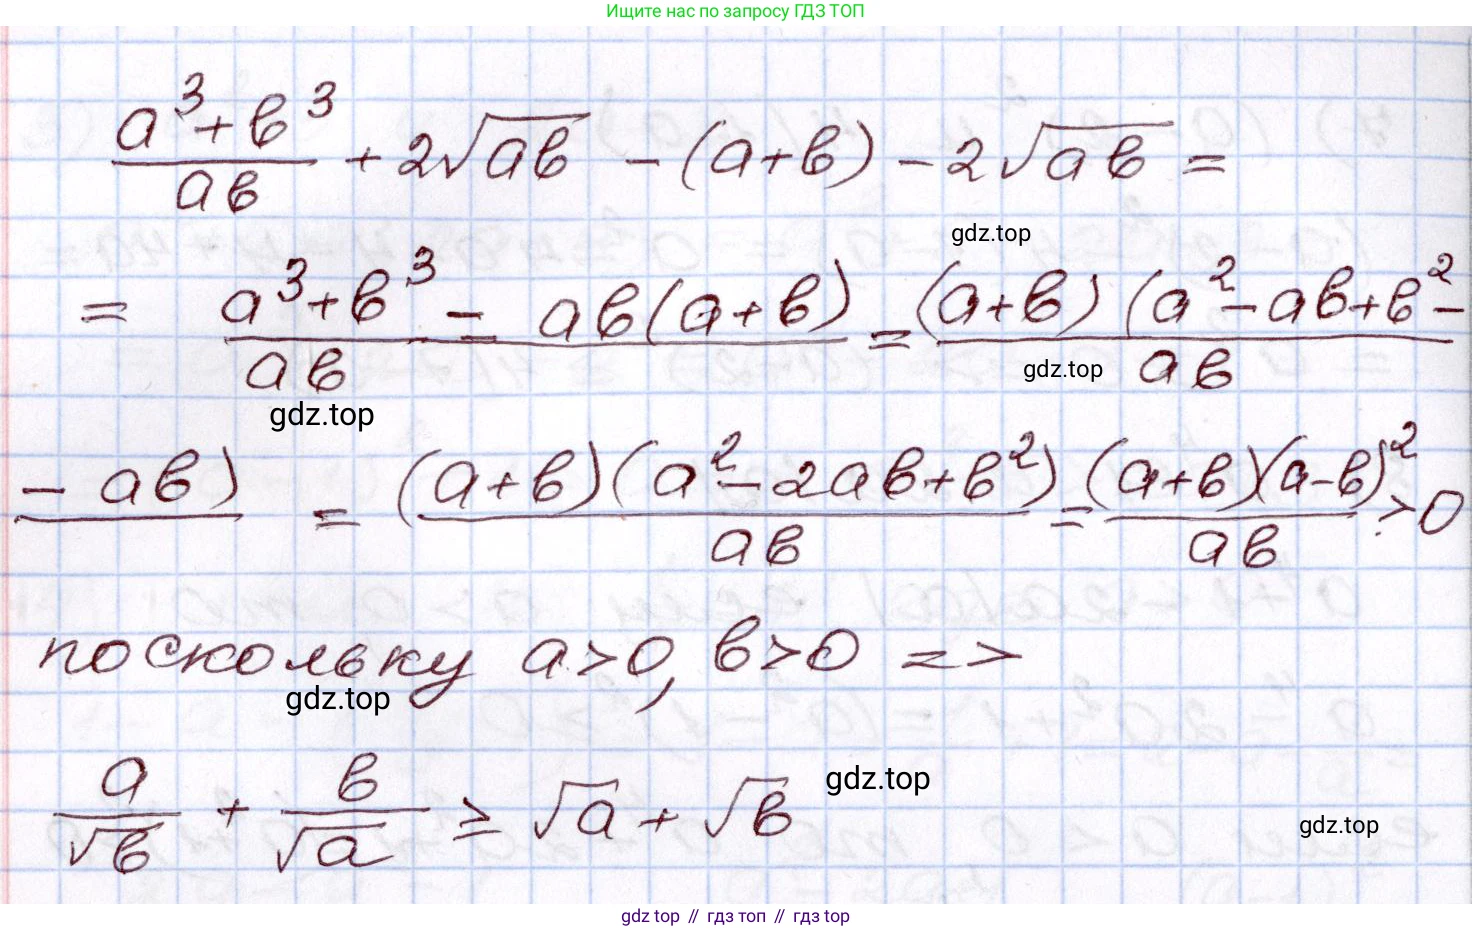 Ищите нас по запросу ГДЗ ТОП
a³+b³/ab + 2√ab - (a+b) - 2√ab =
gdz.top
= a³+b³ - ab(a+b)/ab = (a+b)(a²-ab+b²-/ab
gdz.top
gdz.top
-ab) = (a+b)(a²-2ab+b²)/ab = (a+b)(a-b)²/ab >0
поскольку a>0, b>0 =>
gdz.top
a/√b + b/√a ≥ √a + √b
gdz.top
gdz.top
gdz top // гдз топ // гдз top